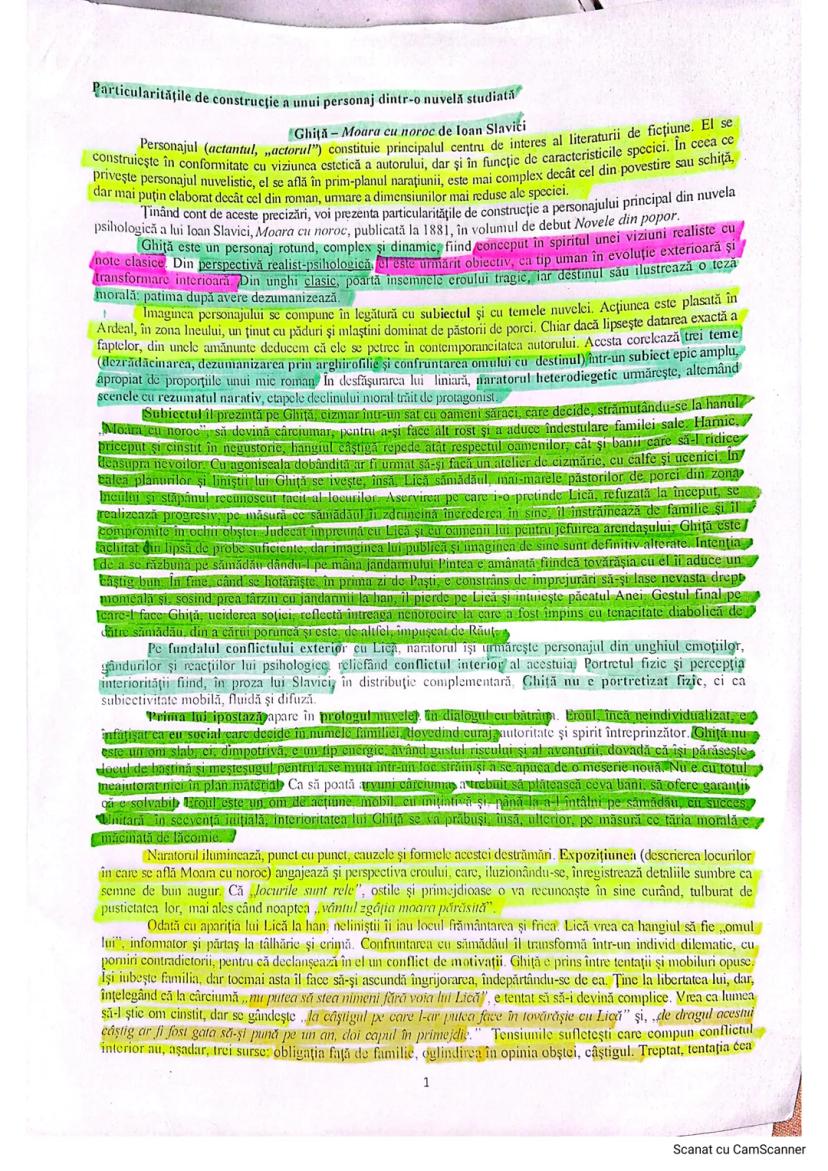 Particularitățile de construcție a unui personaj dintr-o nuvelă studiată
Ghiță – Moara cu noroc de Ioan Slavici
Personajul (actantul, „actorul") constituie principalul centru de interes al literaturii de ficțiune. El se
construiește în conformitate cu viziunea estetică a autorului, dar și în funcție de caracteristicile speciei. În ceea ce
privește personajul nuvelistic, el se află în prim-planul narațiunii, este mai complex decât cel din povestire sau schiță,
dar mai puțin elaborat decât cel din roman, urmare a dimensiunilor mai reduse ale speciei.
Ținând cont de aceste precizări, voi prezenta particularitățile de construcție a personajului principal din nuvela
psihologică a lui Ioan Slavici, Moara cu noroc, publicată la 1881, în volumul de debut Novele din popor.
Ghiță este un personaj rotund, complex și dinamic, fiind conceput în spiritul unei viziuni realiste cu
note clasice. Din perspectivă realist-psihologică, el este urmărit obiectiv, ca tip uman în evoluție exterioară și
transformare interioară. Din unghi clasic, poartă însemnele eroului tragic, iar destinul său ilustrează o teză
morală: patima după avere dezumanizează.
Imaginea personajului se compune în legătură cu subiectul și cu temele nuvelei. Acțiunea este plasată în
Ardeal, în zona Ineului, un ținut cu păduri și mlaștini dominat de păstorii de porci. Chiar dacă lipsește datarea exactă a
faptelor, din unele amănunte deducem că ele se petrec în contemporaneitatea autorului. Acesta corelează trei teme
(dezrădăcinarea, dezumanizarea prin arghirofilie și confruntarea omului cu destinul) într-un subiect epic amplu,
apropiat de proporțiile unui mic roman. În desfășurarea lui liniară, naratorul heterodiegetic urmărește, alternând
scenele cu rezumatul narativ, etapele declinului moral trăit de protagonist.
Subiectul îl prezintă pe Ghiță, cizmar într-un sat cu oameni săraci, care decide, strămutându-se la hanul
„Moara cu noroc", să devină cârciumar, pentru a-și face alt rost și a aduce îndestulare familiei sale. Harnic,
priceput și cinstit în negustorie, hangiul câștigă repede atât respectul oamenilor, cât și banii care să-l ridice
deasupra nevoilor. Cu agoniseala dobândită ar fi urmat să-și facă un atelier de cizmărie, cu calfe și ucenici. În
calea planurilor și liniștii lui Ghiță se ivește, însă, Lică sămădăul, mai-marele păstorilor de porci din zona
Ineului și stăpânul recunoscut tacit al locurilor. Aservirea pe care i-o pretinde Lică, refuzată la început, se
realizează progresiv, pe măsură ce sămădăul îi zdruncină încrederea în sine, îl înstrăinează de familie și îl
compromite în ochii obștei. Judecat împreună cu Lică și cu oamenii lui pentru jefuirea arendașului, Ghiță este
achitat din lipsă de probe suficiente, dar imaginea lui publică și imaginea de sine sunt definitiv alterate. Intenția
de a se răzbuna pe sămădău dându-l pe mâna jandarmului Pintea e amânată fiindcă tovărășia cu el îi aduce un
câștig bun. În fine, când se hotărăște, în prima zi de Paști, e constrâns de împrejurări să-și lase nevasta drept
momeală și, sosind prea târziu cu jandarmii la han, îl pierde pe Lică și intuiește păcatul Anei. Gestul final pe
care-l face Ghiță, uciderea soției, reflectă întreaga nenorocire la care a fost împins cu tenacitate diabolică de
către sămădău, din a cărui poruncă și este, de altfel, împușcat de Răuț.
Pe fundalul conflictului exterior cu Lică, naratorul își urmărește personajul din unghiul emoțiilor,
gândurilor și reacțiilor lui psihologice, reliefând conflictul interior al acestuia. Portretul fizic și percepția
interiorității fiind, în proza lui Slavici, în distribuție complementară, Ghiță nu e portretizat fizic, ci ca
subiectivitate mobilă, fluidă și difuză.
Prima lui ipostază apare în prologul nuvelei, în dialogul cu bătrâna. Eroul, încă neindividualizat, e
înfățișat ca eu social care decide în numele familiei, dovedind curaj, autoritate și spirit întreprinzător. Ghiță nu
este un om slab, ci, dimpotrivă, e un tip energic, având gustul riscului și al aventurii, dovadă că își părăsește
locul de baștină și meșteșugul pentru a se muta într-un loc străin și a se apuca de o meserie nouă. Nu e cu totul
neajutorat nici în plan material. Ca să poată arvuni cârciuma, a trebuit să plătească ceva bani, să ofere garanții
că e solvabil. Eroul este un om de acțiune, mobil, cu inițiativă și, până la a-l întâlni pe sămădău, cu succes.
Unitară în secvența inițială, interioritatea lui Ghiță se va prăbuși, însă, ulterior, pe măsură ce tăria morală e
măcinată de lăcomie.
Naratorul iluminează, punct cu punct, cauzele și formele acestei destrămări. Expozițiunea (descrierea locurilor
în care se află Moara cu noroc) angajează și perspectiva eroului, care, iluzionându-se, înregistrează detaliile sumbre ca
semne de bun augur. Că „locurile sunt rele", ostile și primejdioase o va recunoaște în sine curând, tulburat de
pustietatea lor, mai ales când noaptea „vântul zgâția moara părăsită".
Odată cu apariția lui Lică la han, neliniștii îi iau locul frământarea și frica. Lică vrea ca hangiul să fie „omul
lui", informator și părtaș la tâlhărie și crimă. Confruntarea cu sămădăul îl transformă într-un individ dilematic, cu
porniri contradictorii, pentru că declanșează în el un conflict de motivații. Ghiță e prins între tentații și mobiluri opuse.
Își iubește familia, dar tocmai asta îl face să-și ascundă îngrijorarea, îndepărtându-se de ea. Ține la libertatea lui, dar,
înțelegând că la cârciumă „nu putea să stea nimeni fără voia lui Lică", e tentat să să-i devină complice. Vrea ca lumea
să-l știe om cinstit, dar se gândește „la câștigul pe care l-ar putea face în tovărășie cu Lică" și, „de dragul acestui
câștig ar fi fost gata să-și pună pe un an, doi capul în primejdie." Tensiunile sufletești care compun conflictul
interior au, așadar, trei surse: obligația față de familie, oglindirea în opinia obștei, câștigul. Treptat, tentația cea
1
Scanat cu CamScanner